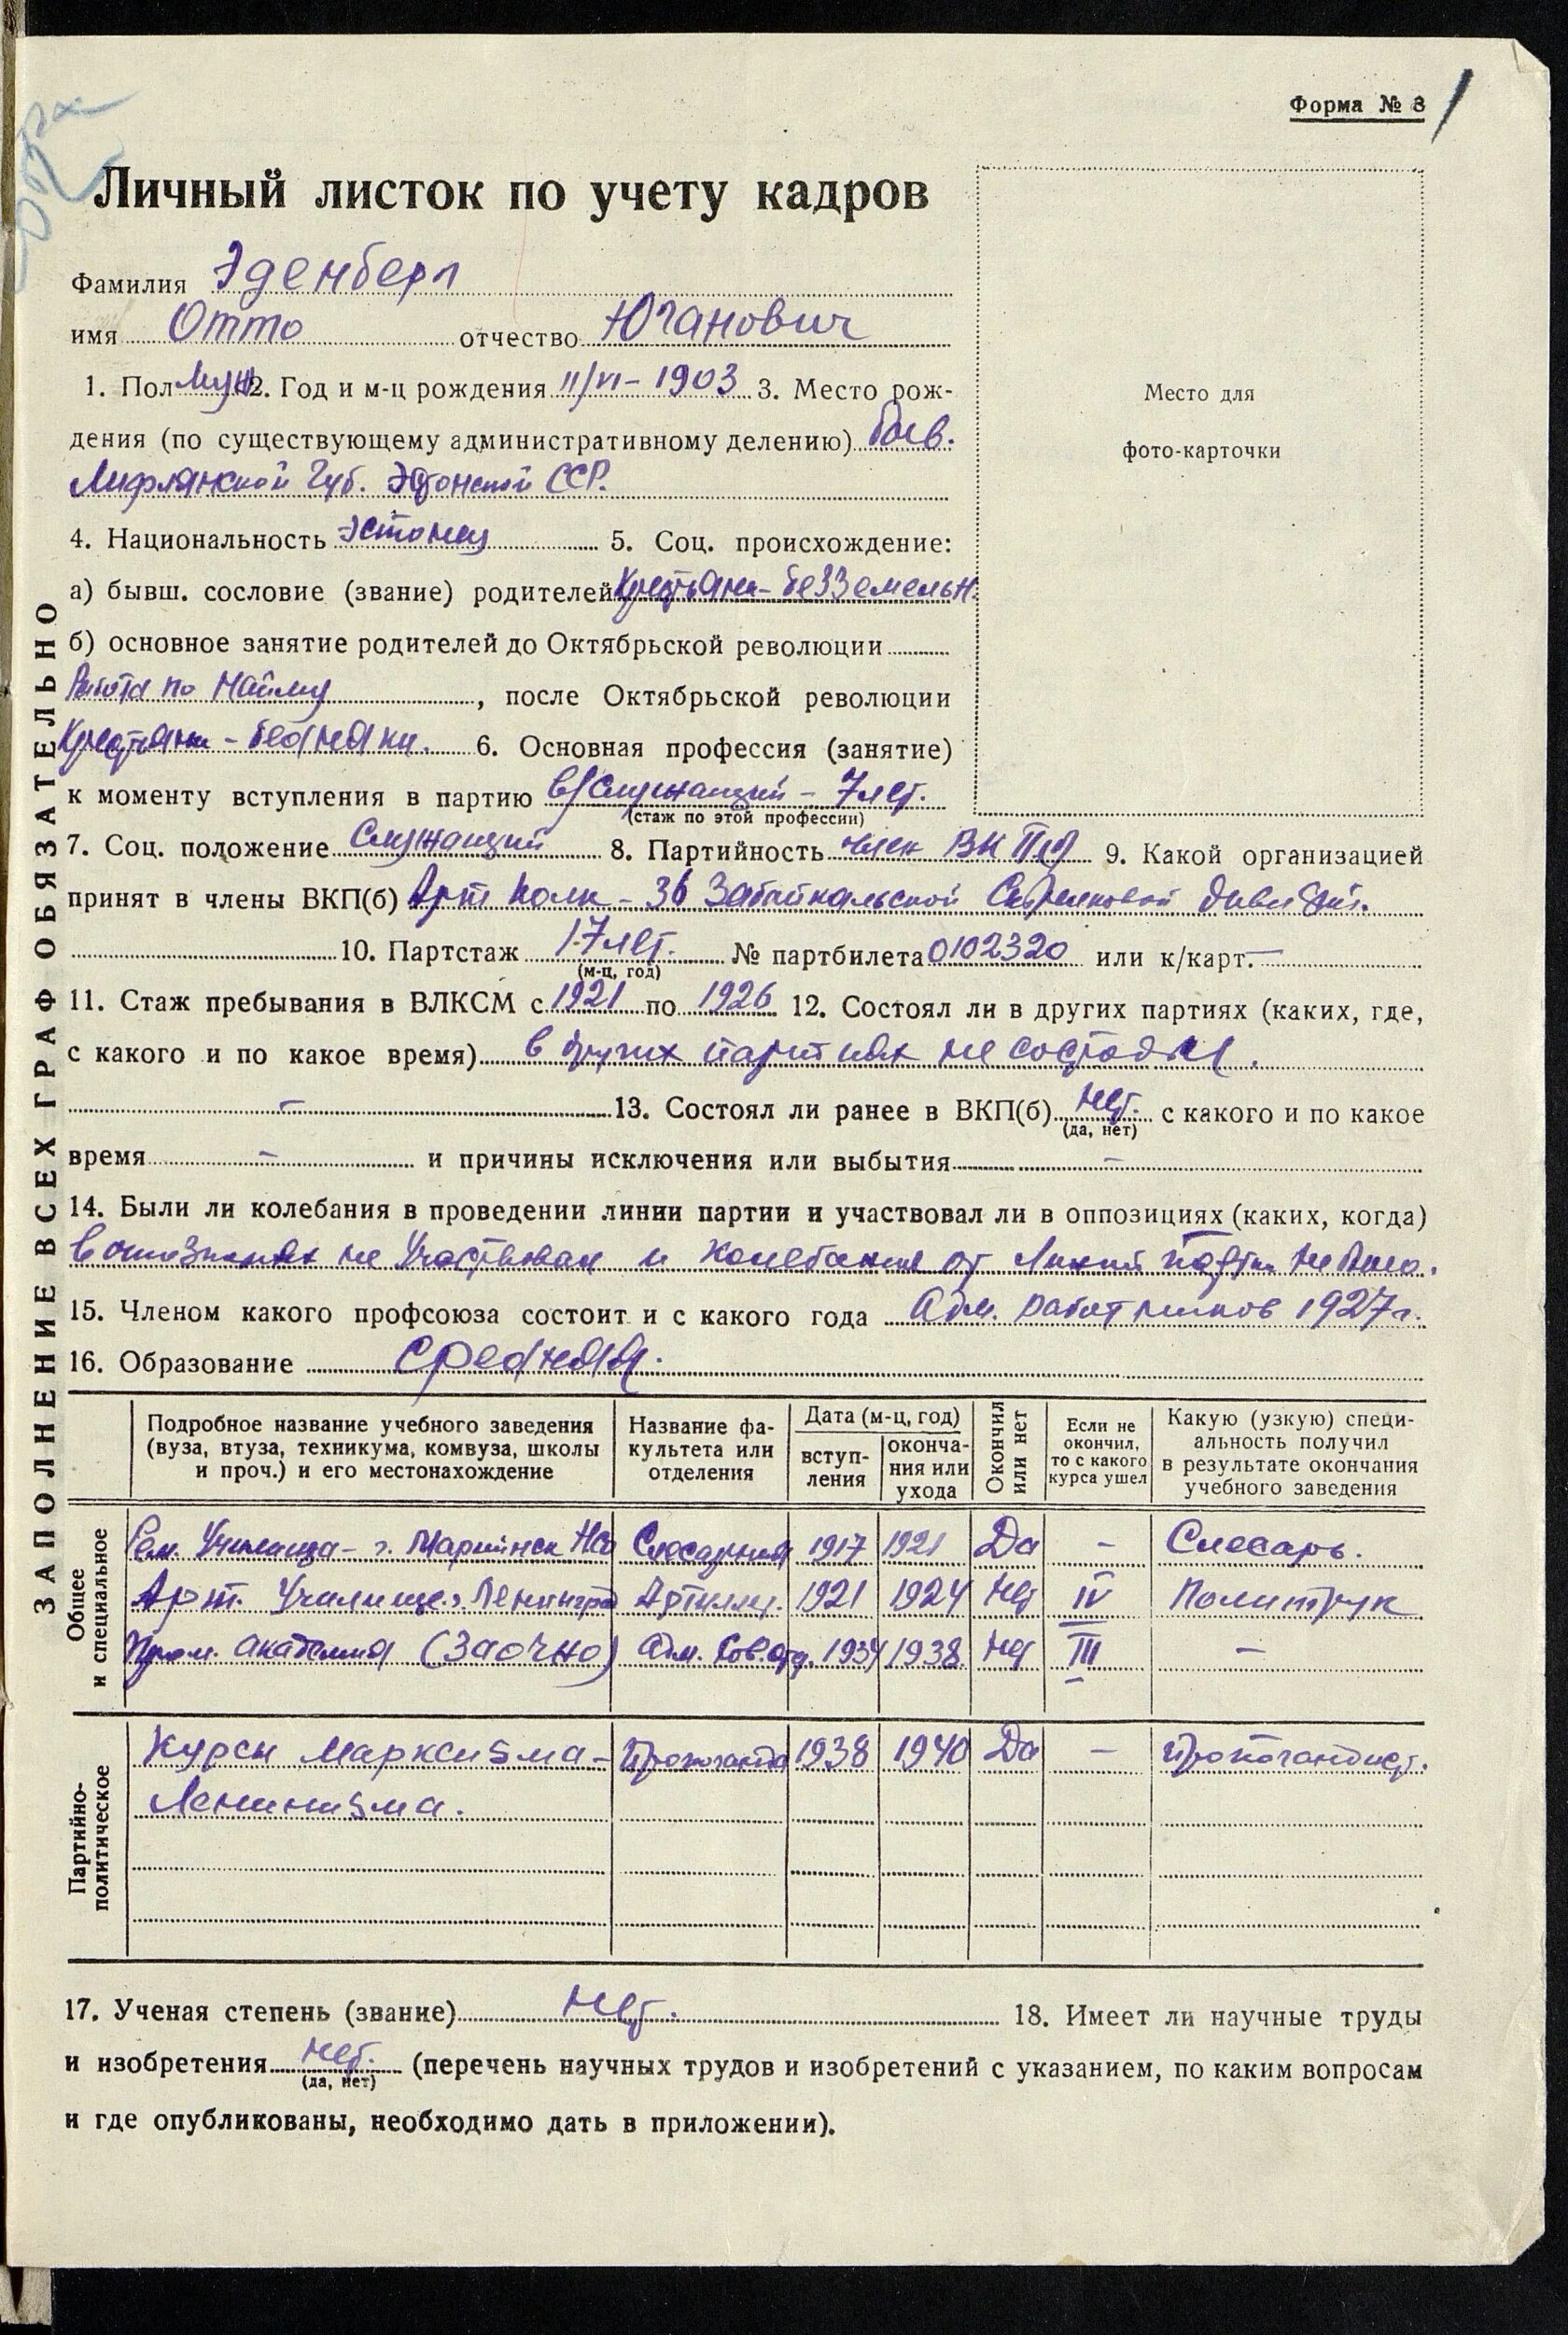 Форма № 3
Личный листок по учету кадров
Фамилия Эденберг
имя Отто отчество Юганович
1. Пол Муж 2. Год и м-ц рождения 11/VI – 1903 3. Место рож-
дения (по существующему административному делению) бывв.
Лифлянской Губ. Эстонской ССР.
4. Национальность Эстонец 5. Соц. происхождение:
а) бывш. сословие (звание) родителей Крестьяне – безземельн.
б) основное занятие родителей до Октябрьской революции
Работа по Найму, после Октябрьской революции
Крестьяне – бедняки. 6. Основная профессия (занятие)
к моменту вступления в партию в/Служащий – 7 лет.
(стаж по этой профессии)
7. Соц. положение Служащий 8. Партийность член ВКП(б) 9. Какой организацией
принят в члены ВКП(б) Арт полк – 36 Забайкальской Стрелковой Дивизии.
10. Партстаж 17 лет. № партбилета 0102320 или к/карт. –
(м-ц, год)
11. Стаж пребывания в ВЛКСМ с 1921 по 1926 12. Состоял ли в других партиях (каких, где,
с какого и по какое время) в других партиях не состоял.
– 13. Состоял ли ранее в ВКП(б) Нет. с какого и по какое
(да, нет)
время – и причины исключения или выбытия –
14. Были ли колебания в проведении линии партии и участвовал ли в оппозициях (каких, когда)
в оппозициях не Участвовал и колебания от Линий партии не было.
15. Членом какого профсоюза состоит и с какого года Адм. работников 1927 г.
16. Образование Средняя.
Подробное название учебного заведения (вуза, втуза, техникума, комвуза, школы и проч.) и его местонахождение
Название факультета или отделения
Дата (м-ц, год)
вступ-ления
оконча-ния или ухода
Окончил или нет
Если не окончил, то с какого курса ушел
Какую (узкую) специ-альность получил в результате окончания учебного заведения
Общее и специальное
Рем. Училище – г. Мариинск Слесарный 1917 1921 Да – Слесарь.
Арт. Училище г. Ленинград Артилл. 1921 1924 Нет IV Политрук
Пром. Академия (Заочно) Адм. Сов. отд. 1934 1938 Нет III –
Партийно-политическое
Курсы Марксизма – Пропоганда 1938 1940 Да – Пропогандист.
Ленинизма.
17. Ученая степень (звание) Нет. 18. Имеет ли научные труды
и изобретения Нет. (перечень научных трудов и изобретений с указанием, по каким вопросам
(да, нет)
и где опубликованы, необходимо дать в приложении).
Место для
фото-карточки
ЗАПОЛНЕНИЕ ВСЕХ ГРАФ ОБЯЗАТЕЛЬНО